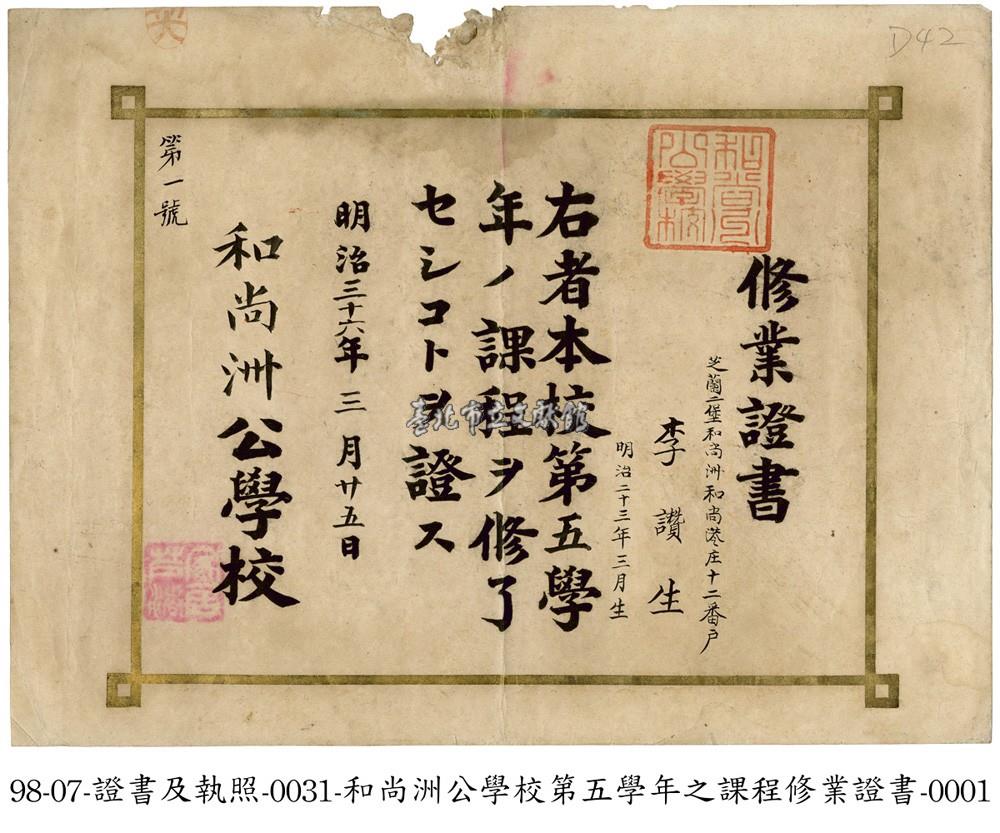 D42
修業證書
芝蘭二堡和尚洲和尚港庄十二番戶
李讚生
明治二十三年三月生
右者本校第五學
年ノ課程ヲ修了
セシコトヲ證ス
明治三十六年三月廿五日
和尚洲公學校
第一號
臺北市立文獻館
98-07-證書及執照-0031-和尚洲公學校第五學年之課程修業證書-0001